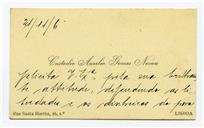 21/11/6
Custodio Aurelio Gomes Neiva
felicita V. Exª. pela sua brilhan
te attitude, defendendo as li
berdades e os direitos do povo
Rua Santa Martha,
LISBOA